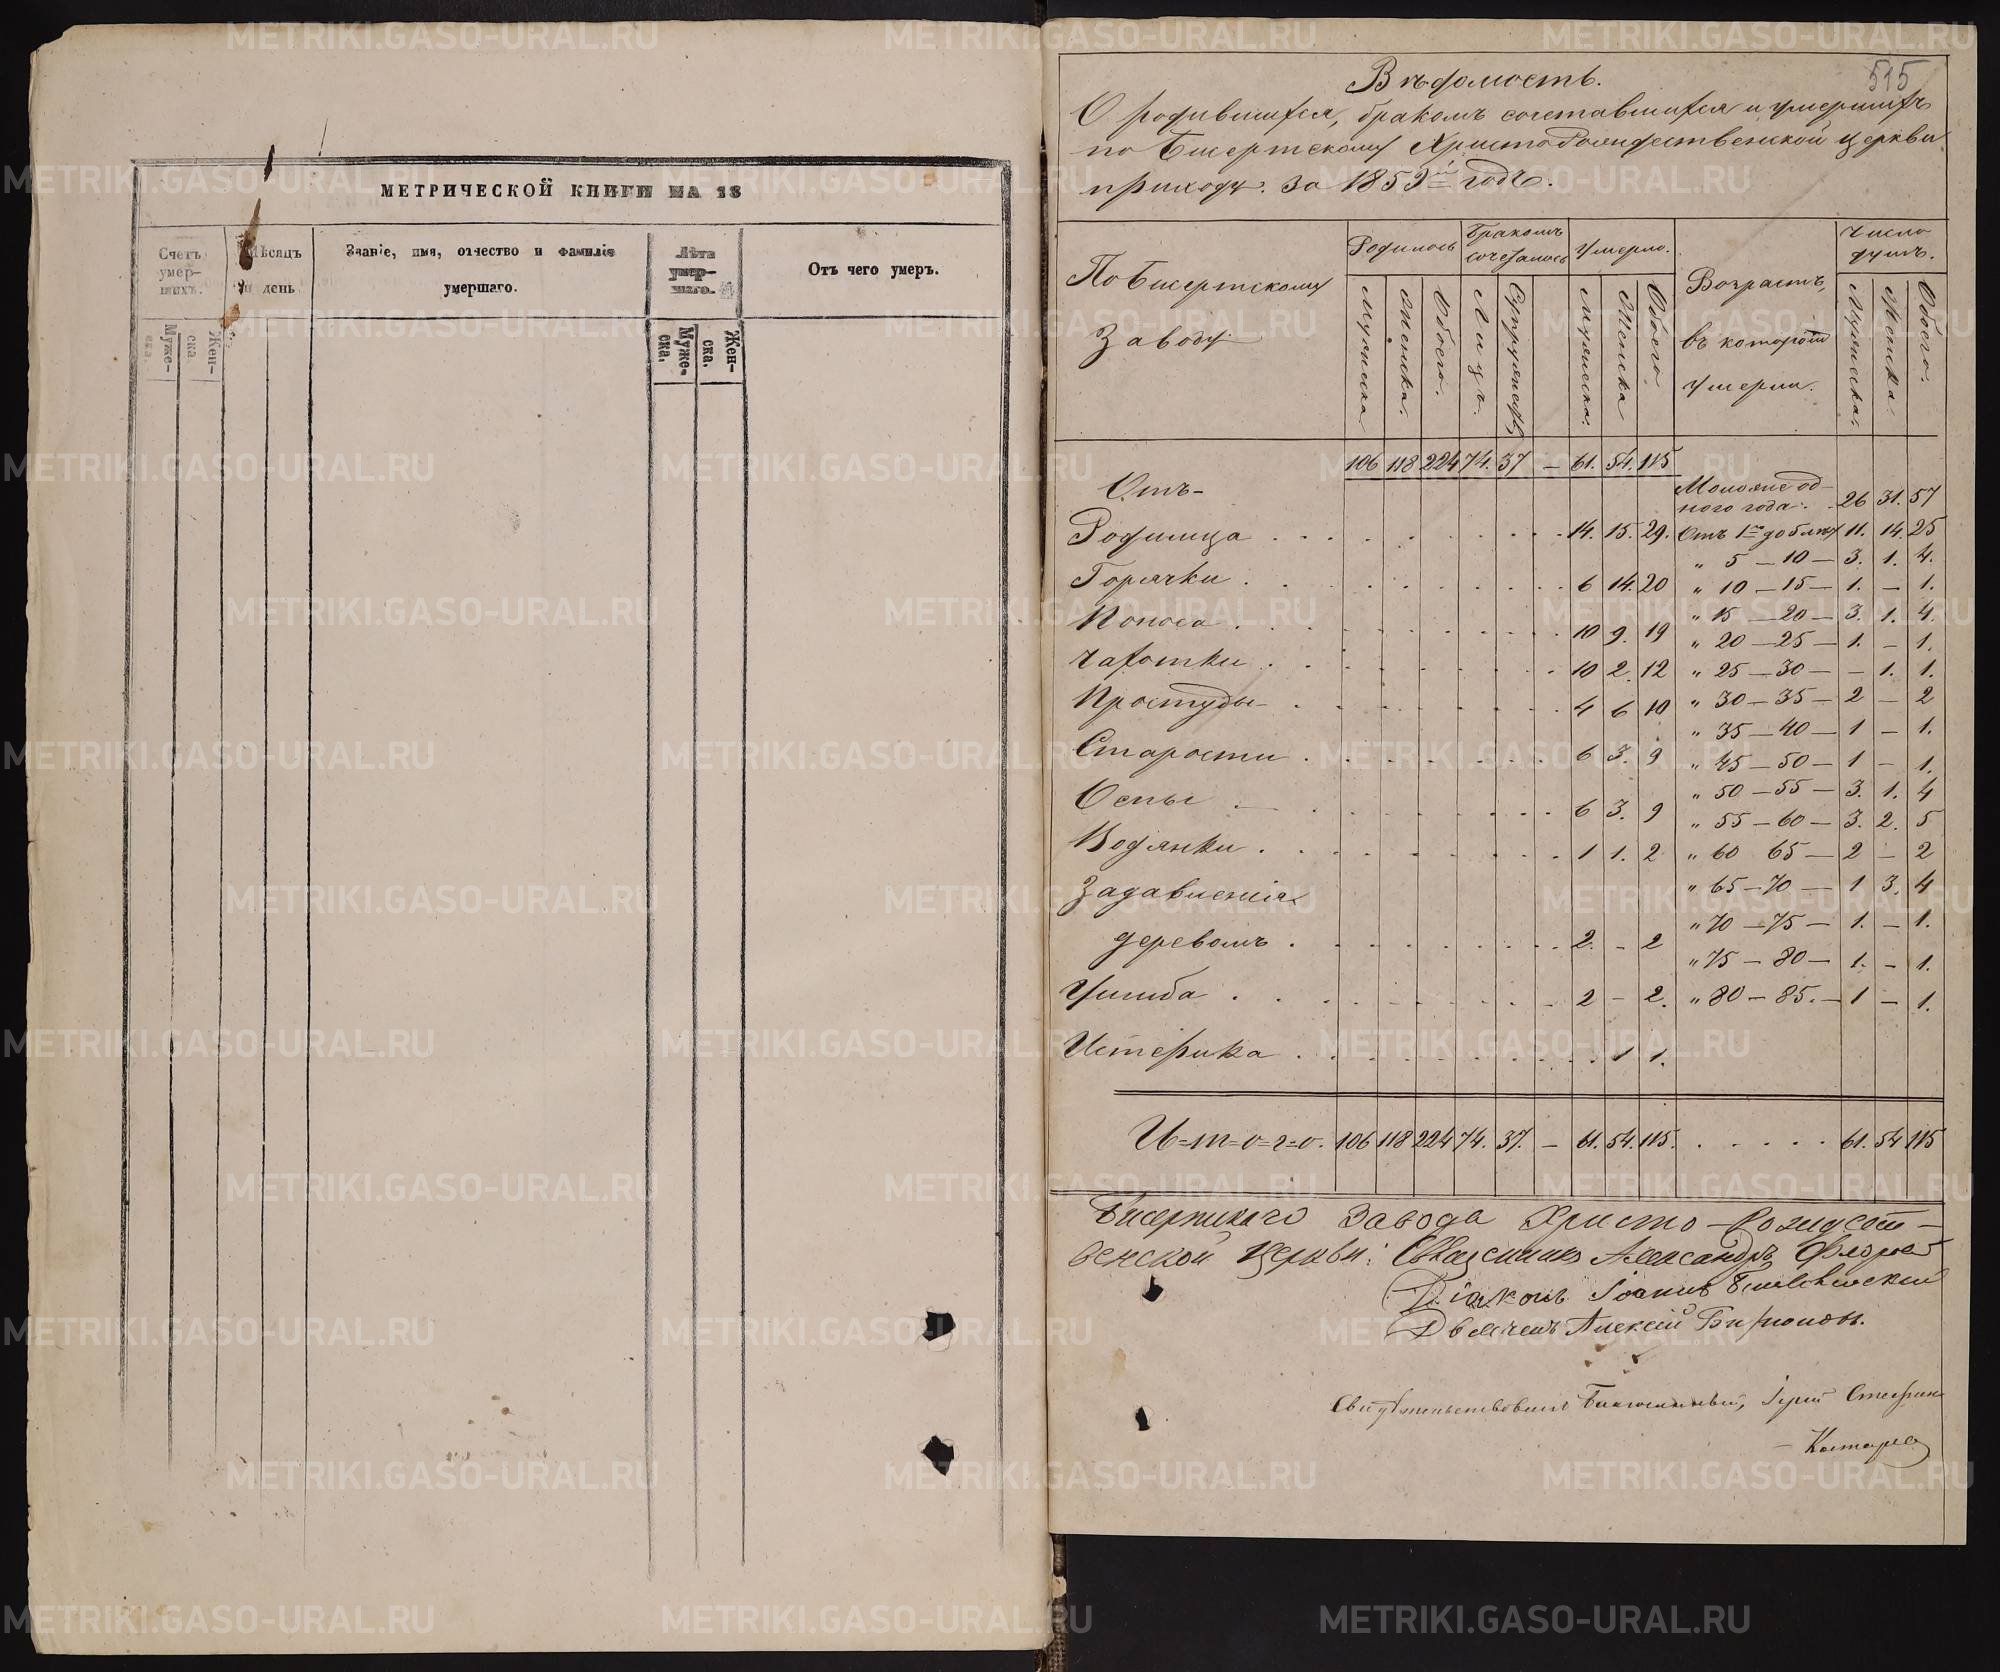 МЕТРИЧЕСКОЙ КНИГИ НА 18
Счетъ умер-шихъ.
Мѣсяцъ и день
Званіе, имя, отчество и фамилія умершаго.
Лѣта умер-шаго.
Отъ чего умеръ.
Муже-ска.
Жен-ска.
Муже-ска.
Жен-ска.
515
Вѣдомость.
О родившихся, бракомъ сочетавшихся и умершихъ
по Бисертскому Христорождественской церкви
приходу. за 1859й годъ.
По Бисертскому
Заводу
Родилось
Бракомъ сочеталось
Умерло.
Возрастъ,
въ которомъ
умерли.
Число душъ.
Мужеска
Женска.
Обоего.
Лицъ.
Супружествъ
Мужеска.
Женска
Обоего
Мужеска.
Женска.
Обоего.
106 118 224 74. 37 — 61. 54. 115
Отъ-
Моложе од-
ного года. . 26 31. 57
Родимца . . . 14. 15. 29.
Отъ 1го до 5 лѣт 11. 14. 25
„ 5 — 10 — 3. 1. 4.
Горячки . . . 6 14. 20
„ 10 — 15 — 1. — 1.
„ 15 — 20 — 3. 1. 4.
Поноса . . . 10 9. 19
„ 20 — 25 — 1. — 1.
Чахотки . . . 10 2. 12
„ 25 — 30 — — 1. 1.
Простуды . . . 4 6 10
„ 30 — 35 — 2 — 2
„ 35 — 40 — 1 — 1.
Старости . . . 6 3. 9
„ 45 — 50 — 1 — 1.
„ 50 — 55 — 3. 1. 4
Оспы . . . 6 3. 9
„ 55 — 60 — 3. 2. 5
Водянки . . . 1 1. 2
„ 60 65 — 2 — 2
Задавленія
„ 65 — 70 — 1 3. 4
„ 70 — 75 — 1. — 1.
деревомъ . . . 2. — 2
„ 75 — 80 — 1. — 1.
Ушиба . . . 2 — 2.
„ 80 — 85. — 1 — 1.
Истерика . . . 1 1.
И=т=о=г=о. 106 118 224 74. 37. — 61. 54. 115. . . . 61. 54 115
Бисертскаго Завода Христо-Рождест-
венской Церкви: Священникъ Александръ Флоров
Діаконъ Іоаннъ
Дьячекъ Алексѣй Бирюковъ.
Свидѣтельствовалъ Благочинный, Іерей Стефанъ
METRIKI.GASO-URAL.RU